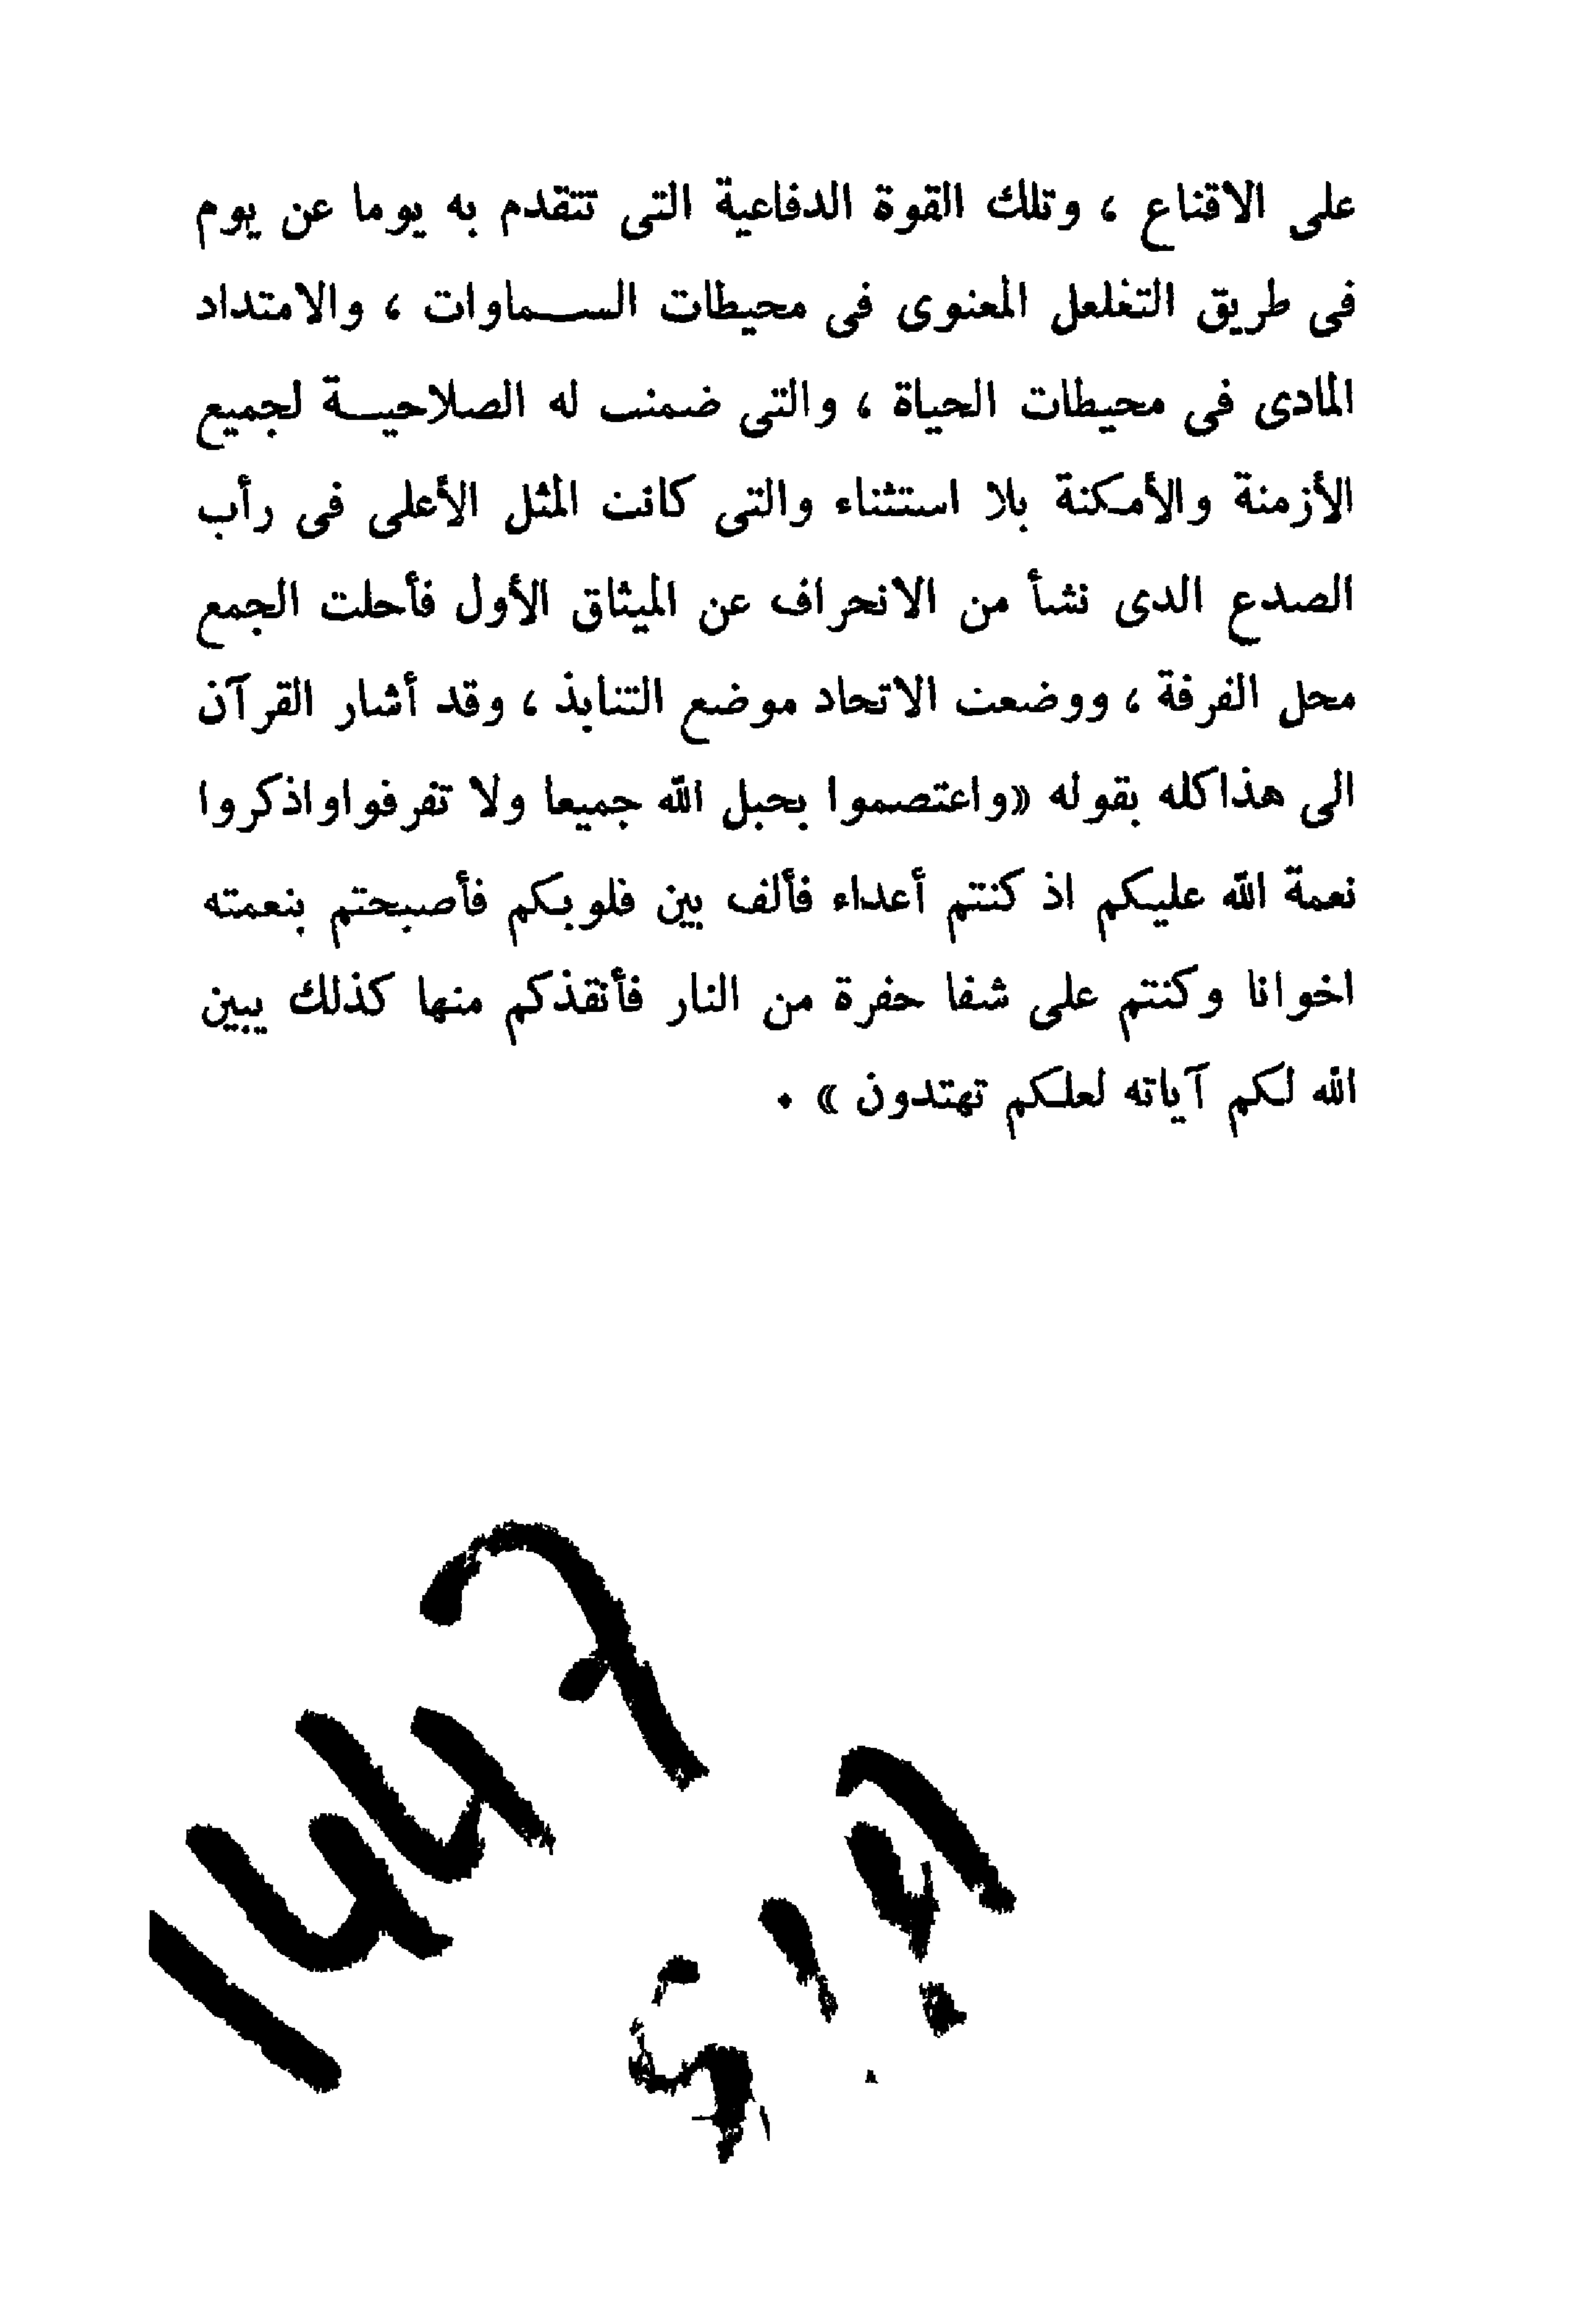 على الاقناع ، وتلك القوة الدفاعية التى تتقدم به يوما عن يوم
فى طريق التغلعل المعنوى فى محيطات الســماوات ، والامتداد
المادى فى محيطات الحياة ، والتى ضمنت له الصلاحيــة لجميع
الأزمنة والأمكنة بلا استثناء والتى كانت المثل الأعلى فى رأب
الصدع الدى نشأ من الانحراف عن الميثاق الأول فأحلت الجمع
محل الفرفة ، ووضعت الاتحاد موضع التنابذ ، وقد أشار القرآن
الى هذاكله بقوله «واعتصموا بحبل الله جميعا ولا تفرفواواذكروا
نعمة الله عليكم اذ كنتم أعداء فألف بين فلوبكم فأصبحتم بنعمته
اخوانا وكنتم على شفا حفرة من النار فأنقذكم منها كذلك يبين
الله لكم آياته لعلكم تهتدون » .